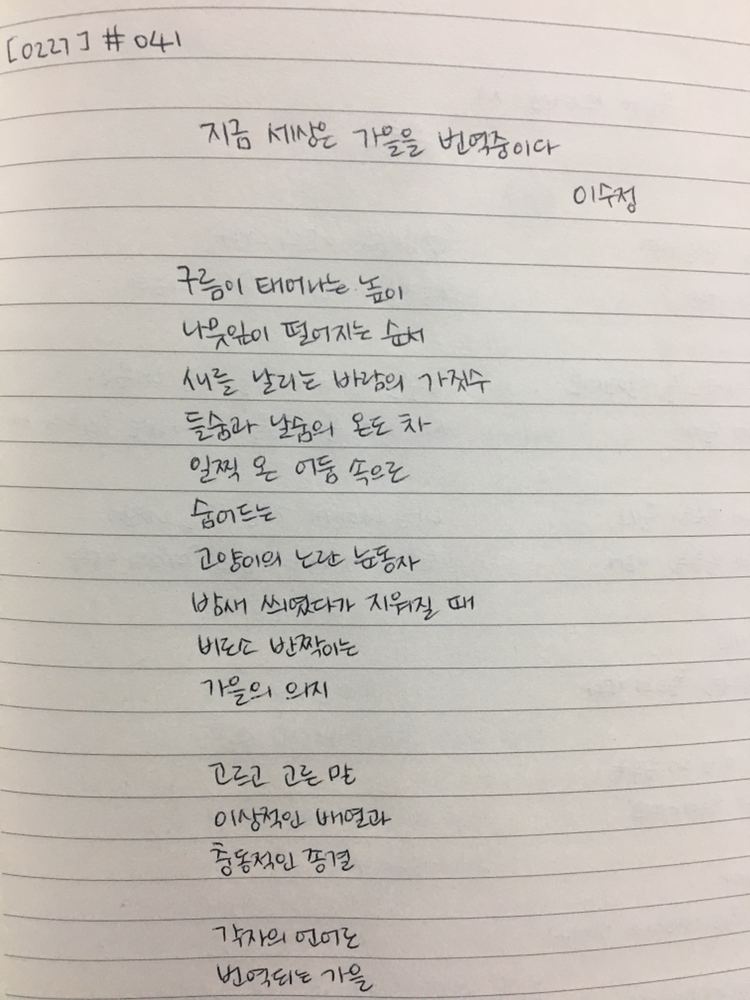 [0227] # 041
지금 세상은 가을을 번역중이다
이수정
구름이 태어나는 높이
나뭇잎이 떨어지는 순서
새를 날리는 바람의 가짓수
들숨과 날숨의 온도 차
일찍 온 어둠 속으로
숨어드는
고양이의 노란 눈동자
밤새 씌였다가 지워질 때
비로소 반짝이는
가을의 의지
고르고 고른 말
이상적인 배열과
충동적인 종결
각자의 언어로
번역되는 가을